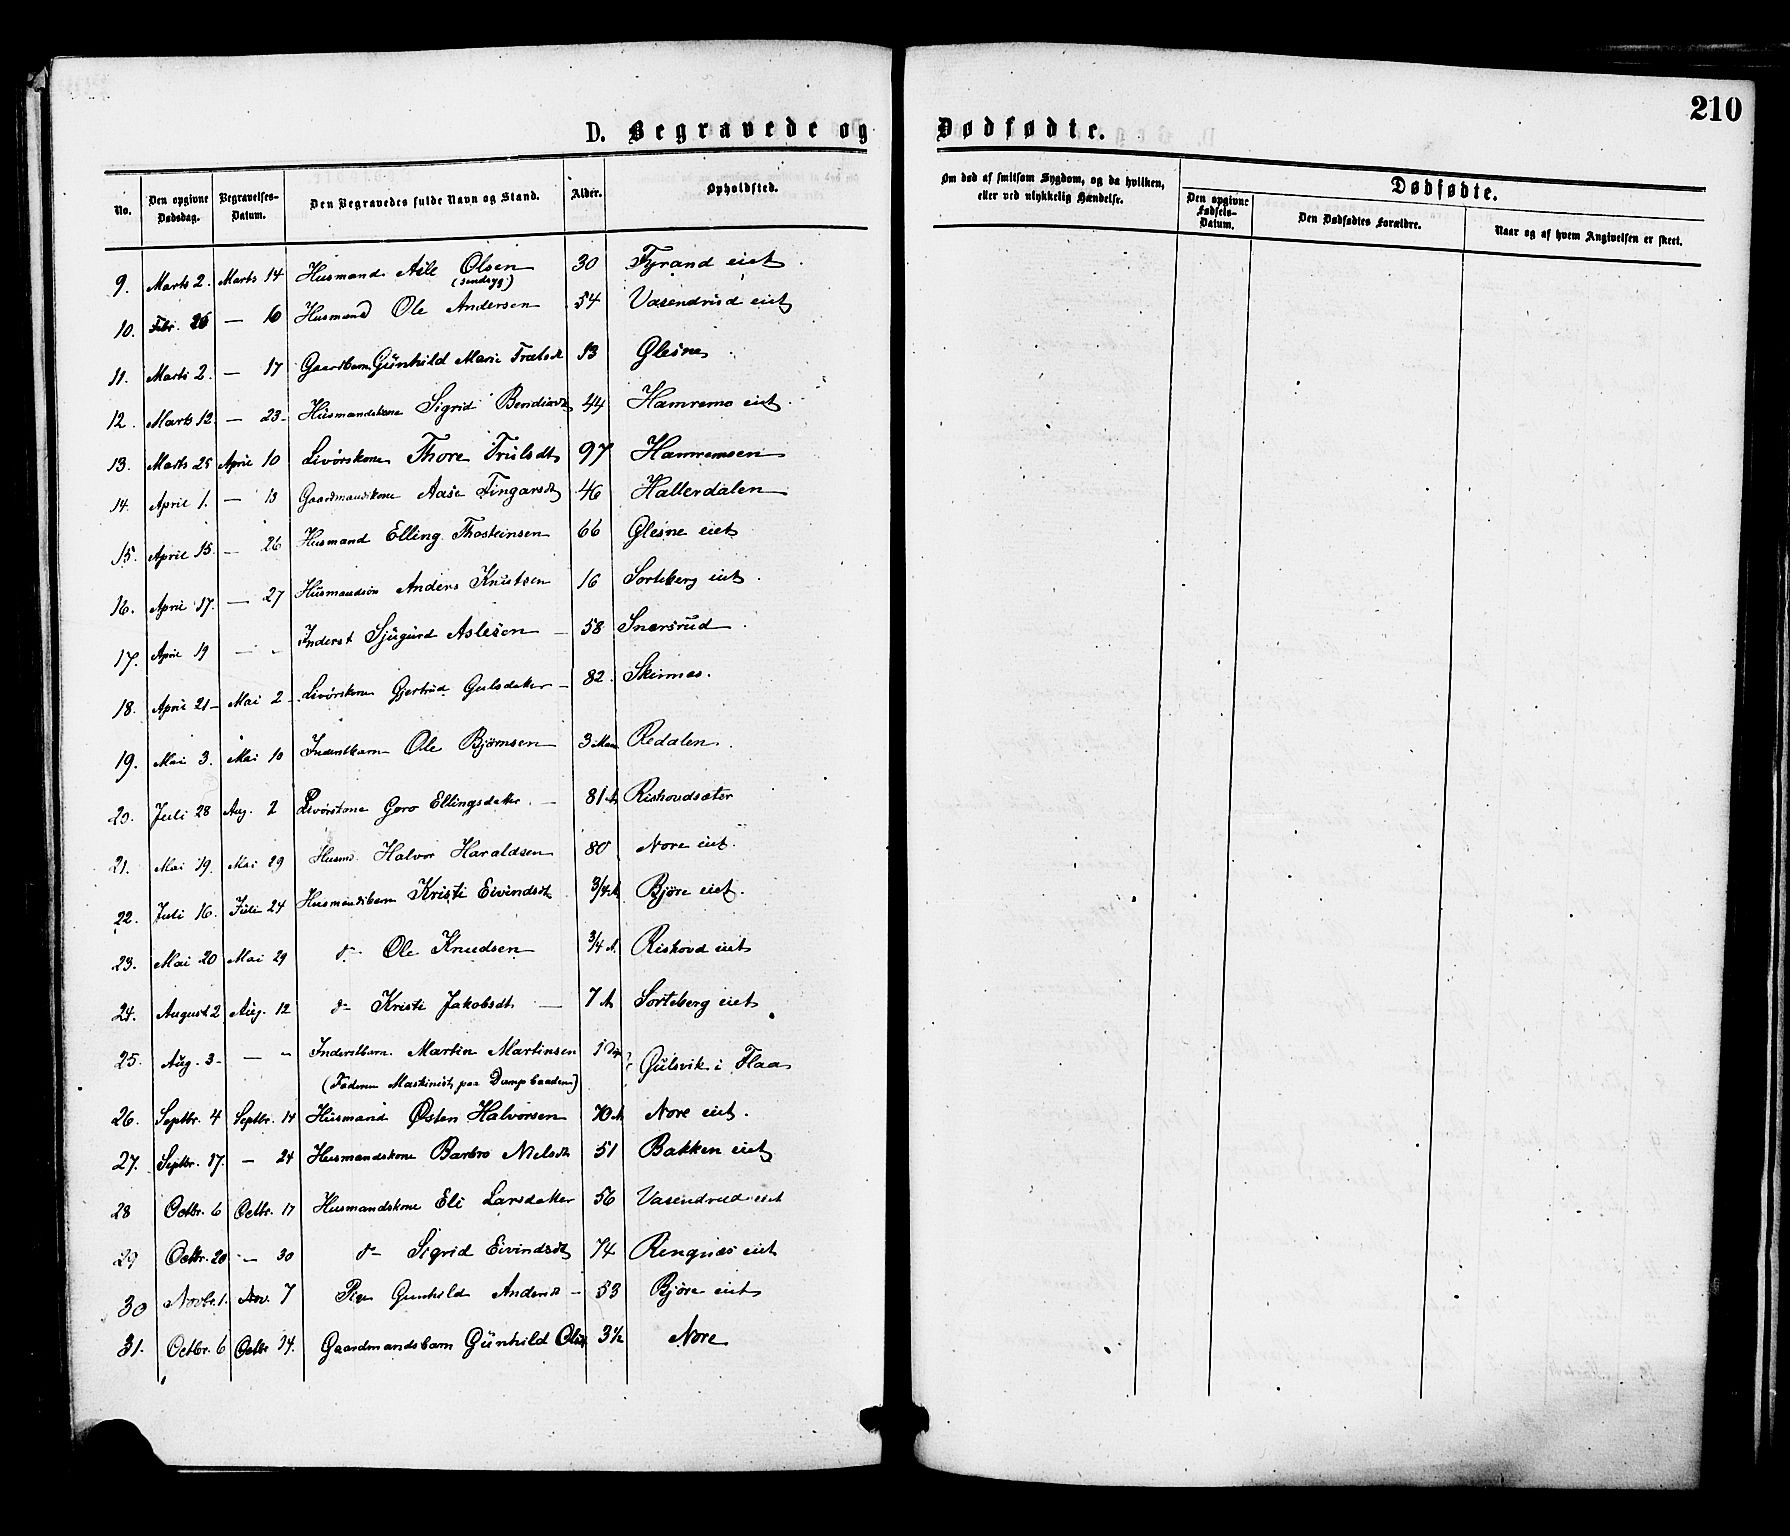 210
D. Begravede og Dødfødte.
No. Den opgivne Dødsdag. Begravelses-Datum. Den Begravedes fulde Navn og Stand. Alder. Opholdsted. Om død af smitsom Sygdom, og da hvilken, eller ved ulykkelig Hændelse. Dødfødte.
Den opgivne Fødsels-Datum. Den Dødfødtes Forældre. Naar og af hvem Angivelsen er skeet.
9. Marts 2. Marts 14 Husmand Asle Olsen 30 Fyrand eiet
(sindsyg)
10. Febr. 26 — 16 Husmand Ole Andersen 54 Vasendrud eiet
11. Marts 2. — 17 Gaardbarn Günhild Marie 13 Glesne
12. Marts 12. — 23 Husmandskone Sigrid 44 Hamremo eiet
13. Marts 25 April 10 Livørskone Thore Trulsdt 97 Hamremoen
14. April 1. — 13 Gaardmandskone Aase Fingarsdt 46 Hallerdalen
15. April 15. — 26 Husmand Elling Thosteinsen 66 Glesne eiet
16. April 17. — 27 Husmandssøn Anders Knutsen 16 Sorteberg eiet
17. April 19 — - Inderst Sjugurd Aslesen — 58 Snersrud
18. April 21 — Mai 2 Livørskone Gjertrud Gulsdatter — 82. Skinnes.
19. Mai 3. Mai 10 Inderstbarn Ole Bjørnsen 3 Redalen
20. Juli 28 Aug. 2 Livørskone Goro Ellingsdatter. — 81 A Rishovdsæter
21. Mai 19. Mai 29 Husm. Halvor Haraldsen 80 Nore eiet.
22. Juli 16. Juli 24 Husmandsbarn Kristi Eivindsdt 3/4 A. Bjøre eiet.
23. Mai 20 Mai 29 do Ole Knudsen 3/4 A. Rishovd eiet
24. August 2 Aug. 12 do Kristi Jakobsdt. — 7 A Sorteberg eiet
25. Aug. 3 — - Inderstbarn. Martin Martinsen 1 Gulsvik i Flaa
(Faderen Maskinist paa Dampbaaden)
26. Septbr. 4 Septbr. 14 Husmand Østen Halvorsen 70 A Nore eiet.
27. Septbr. 17. — 24 Husmandskone Barbro Nielsdt 51 Bakken eiet
28 Octbr. 6 Octbr. 17 Husmandskone Eli Larsdatter 56 Vasendrud eiet
29 Octbr. 20 — 30 do Sigrid Eivindsdt 74 Rengnæs eiet
30 Novbr. 1. Nov. 7 Pige Gunhild Andersdt — 53 Bjøre eiet
31. Octbr. 6 Octbr 14. Gaardmandsbarn Günhild 3½ Nore